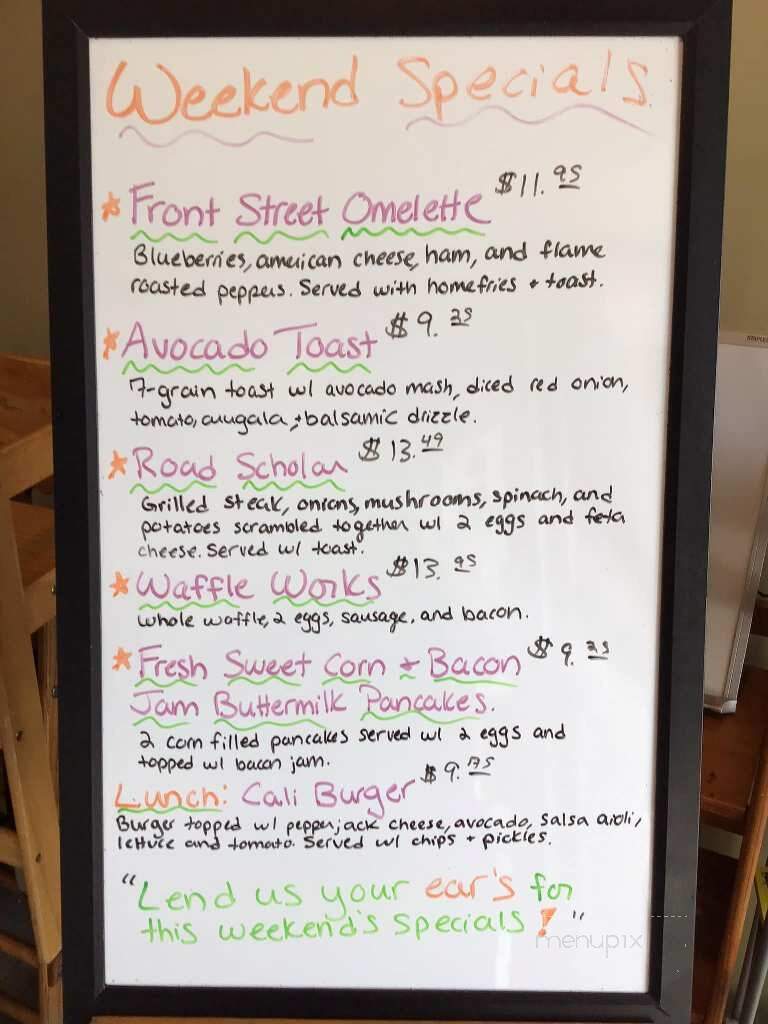 Weekend Specials
Front Street Omelette $11.95
Blueberries, american cheese, ham, and flame
roasted peppers. Served with homefries + toast.
Avocado Toast $9.25
7-grain toast w/ avocado mash, diced red onion,
tomato, arugala, + balsamic drizzle.
Road Scholar $13.49
Grilled steak, onions, mushrooms, spinach, and
potatoes scrambled together w/ 2 eggs and feta
cheese. Served w/ toast.
Waffle Works $13.95
whole waffle, 2 eggs, sausage, and bacon.
Fresh Sweet Corn + Bacon $9.25
Jam Buttermilk Pancakes.
2 corn filled pancakes served w/ 2 eggs and
topped w/ bacon jam.
Lunch: Cali Burger $9.75
Burger topped w/ pepperjack cheese, avocado, salsa aioli,
lettuce and tomato. Served w/ chips + pickles.
"Lend us your ear's for
this weekend's specials!"
menupix
STAPLES